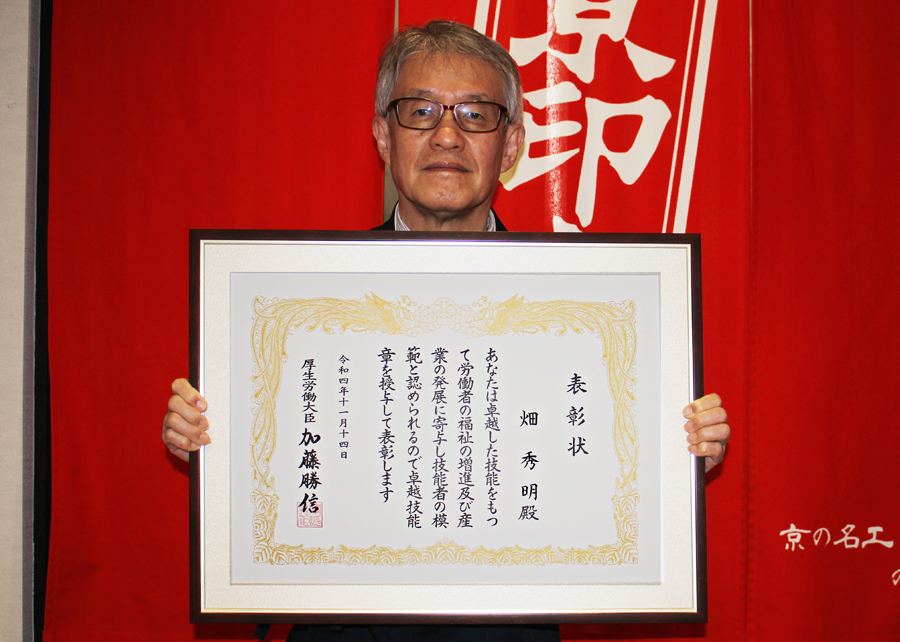 京印
表彰状
畑秀明殿
あなたは卓越した技能をもつ
て労働者の福祉の増進及び産
業の発展に寄与し技能者の模
範と認められるので卓越技能
章を授与して表彰します
令和四年十一月十四日
厚生労働大臣 加藤勝信
京の名工
の